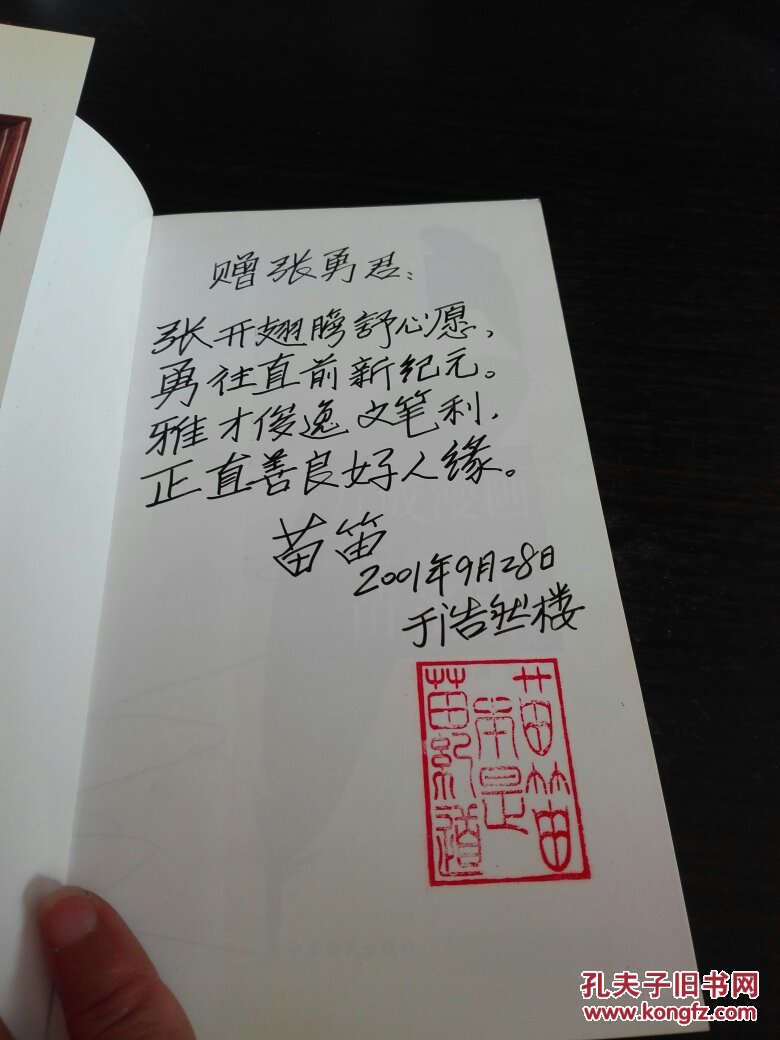 赠张勇君：
张开翅膀舒心愿，
勇往直前新纪元。
雅才俊逸文笔利，
正直善良好人缘。
苗笛
2001年9月28日
于浩然楼
苗笛
本是
苗纪道
孔夫子旧书网
www.kongfz.com